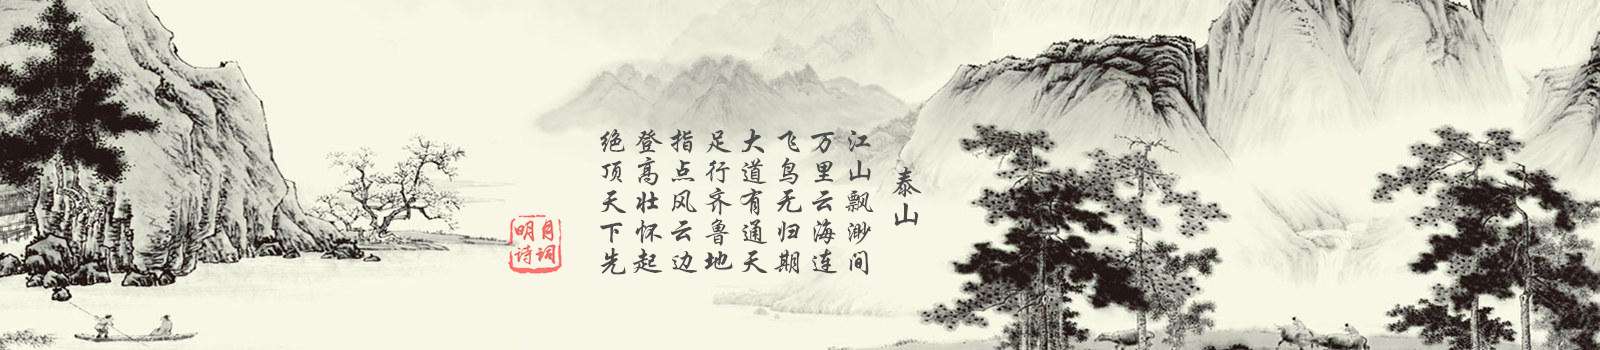 泰山
江山飘渺间
万里云海连
飞鸟无归期
大道有通天
足行齐鲁地
指点风云边
登高壮怀起
绝顶天下先
明月
诗词